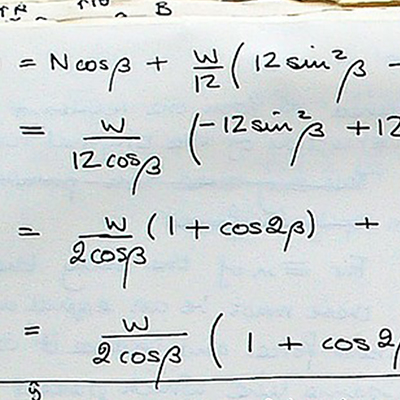 B
= N cos β + W/12 ( 12 sin² β -
= W/12 cos β ( -12 sin² β + 12
= W/2 cos β ( 1 + cos 2β ) +
= W/2 cos β ( 1 + cos 2β